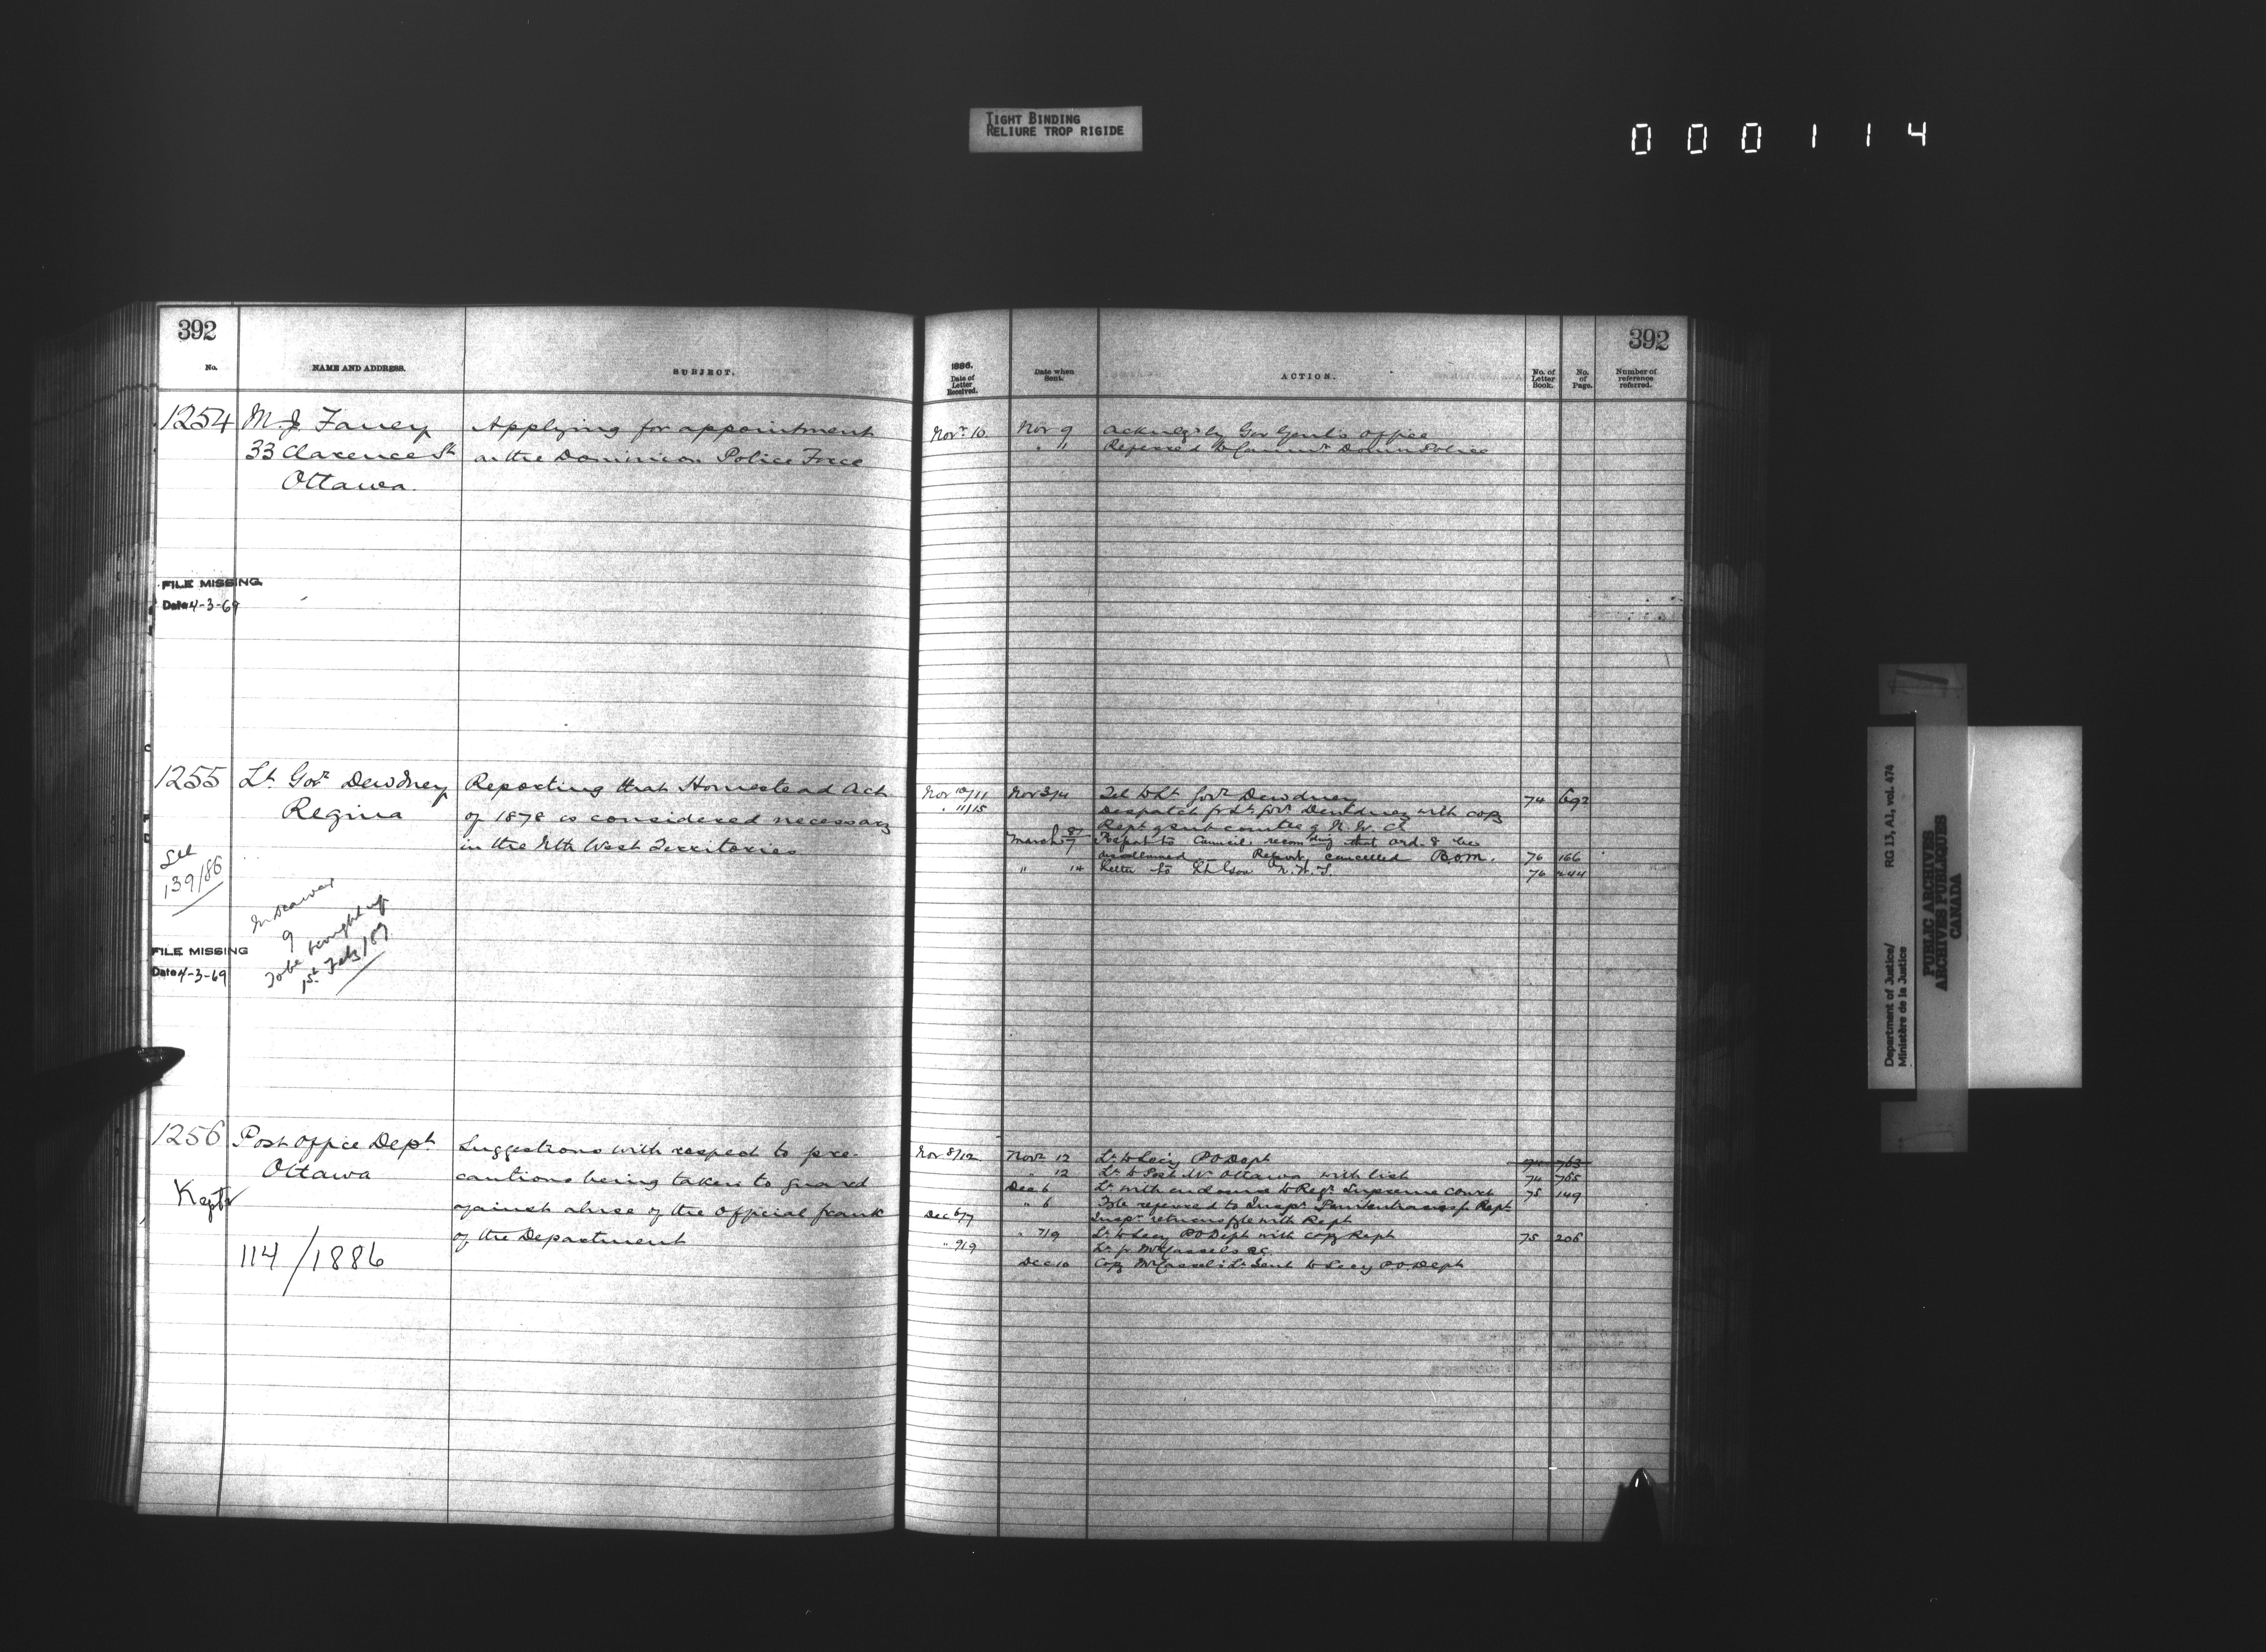 TIGHT BINDING
RELIURE TROP RIGIDE
000114
392
No.
NAME AND ADDRESS.
SUBJECT.
1254
M. J. Faney
33 Clarence St
Ottawa.
Applying for appointment
on the Dominion Police Force
FILE MISSING
Date 4-3-69
1255
Lt. Govr Dewdney
Regina
Reporting that Homestead Act
of 1878 is considered necessary
in the Nth West Territories
See
139/86
9
To be brought up
1st Feby/89
FILE MISSING
Date 4-3-69
1256
Post Office Dept
Ottawa
Kept
114/1886
Suggestions with respect to pre-
cautions being taken to guard
against abuse of the Official frank
of the Department
392
1886.
Date of Letter Received.
Date when Sent.
ACTION.
No. of Letter Book.
No. of Page.
Number of reference referred.
Novr 10 Nov 9 Acknlgd by Gov Genl's Office
" " Referred to Commr Domn Police
Nov 10/11 Nov 3/4 Tel to Lt Govr Dewdney 74 692
" 11/15 Despatch fr Lt Govr Dewdney with copy
Rept of
March 87/7 Report to Council recomding that ord. 8 be
Report cancelled B.O.M. 76 166
" 14 Letter to Lt Gov N.W.T. 76 244
Nov 8/12 Novr 12 Lr to Secy P O Dept 74 763
" 12 Lr to Post Mr Ottawa with list 74 765
Dec 6 Lr with enclosure to Regr Supreme Court 75 149
" 6 File referred to Inspr Penitentiaries for Rept
Dec 6/7 Inspr returns file with Rept
" 7/9 Lr to Secy P O Dept with copy Rept 75 206
" 9/9 Lr fr Mr Cassels
Dec 10 Copy Mr Cassels Lr sent to Secy P.O. Dept
Department of Justice/
Ministère de la Justice
RG 13, A1, vol. 474
PUBLIC ARCHIVES
ARCHIVES PUBLIQUES
CANADA